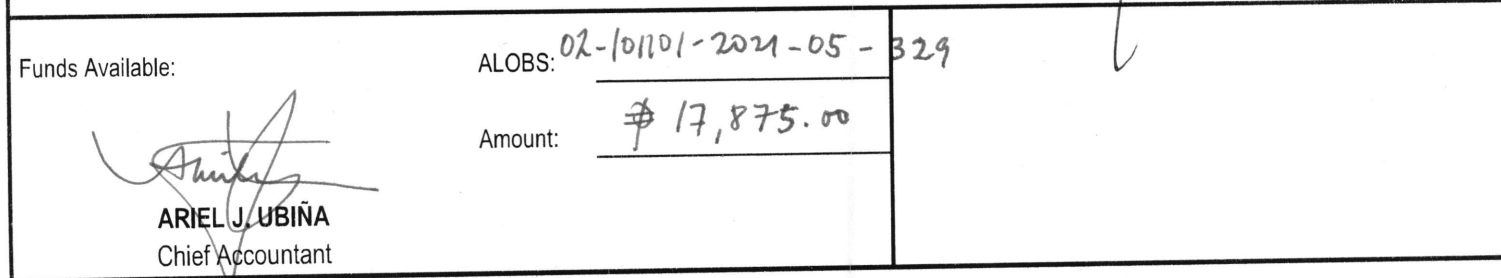 Funds Available:
ALOBS: 02-101101-2021-05-329
Amount: ₱ 17,875.00
ARIEL J. UBIÑA
Chief Accountant